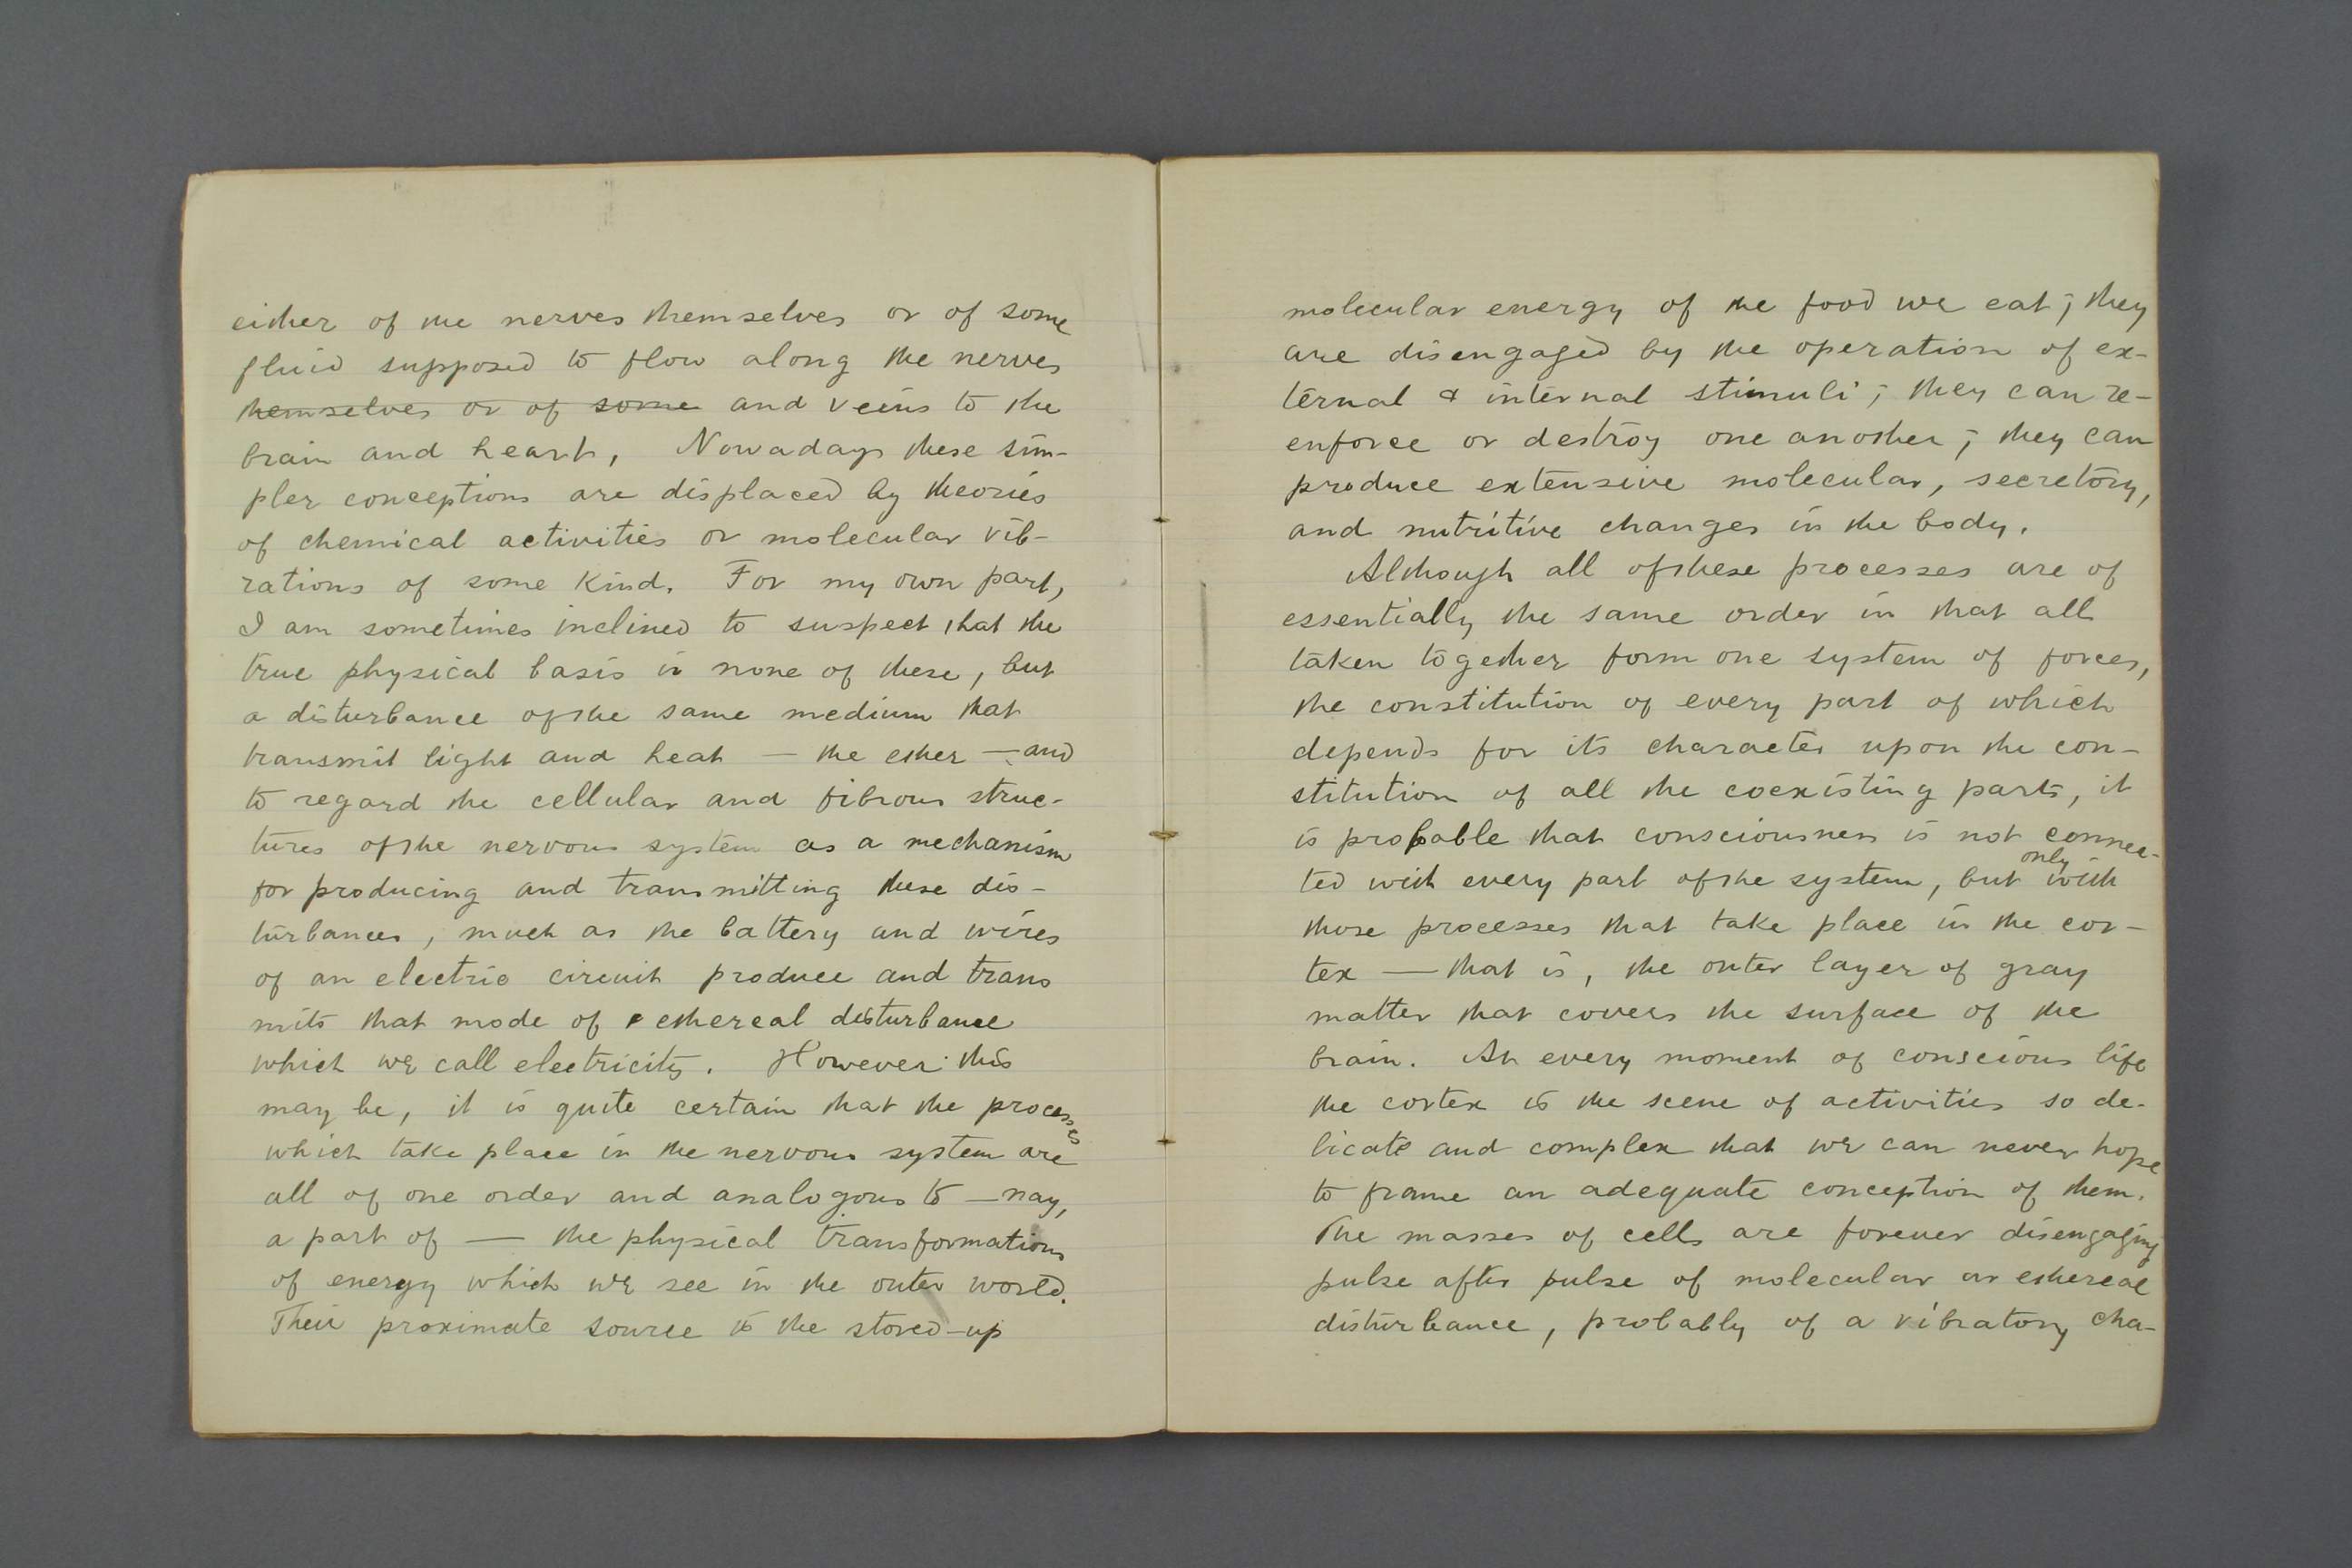 either of the nerves themselves or of some
fluid supposed to flow along the nerves
themselves or of some and veins to the
brain and heart, Nowadays these sim-
pler conceptions are displaced by theories
of chemical activities or molecular vib-
rations of some kind. For my own part,
I am sometimes inclined to suspect that the
true physical basis is none of these, but
a disturbance of the same medium that
transmit light and heat — the ether — and
to regard the cellular and fibrous struc-
tures of the nervous system as a mechanism
for producing and transmitting these dis-
turbances, much as the battery and wires
of an electric circuit produce and trans
mits that mode of ethereal disturbance
which we call electricity. However this
may be, it is quite certain that the processes
which take place in the nervous system are
all of one order and analogous to — nay,
a part of — the physical transformations
of energy which we see in the outer world.
Their proximate source is the stored-up
molecular energy of the food we eat; they
are disengaged by the operation of ex-
ternal & internal stimuli; they can re-
enforce or destroy one another; they can
produce extensive molecular, secretory,
and nutritive changes in the body.
Although all of these processes are of
essentially the same order in that all
taken together form one system of forces,
the constitution of every part of which
depends for its character upon the con-
stitution of all the coexisting parts, it
is probable that consciousness is not connec-
ted with every part of the system, but only with
those processes that take place in the cor-
tex — that is, the outer layer of gray
matter that covers the surface of the
brain. At every moment of conscious life
the cortex is the scene of activities so de-
licate and complex that we can never hope
to frame an adequate conception of them.
The masses of cells are forever disengaging
pulse after pulse of molecular or ethereal
disturbance, probably of a vibratory cha-